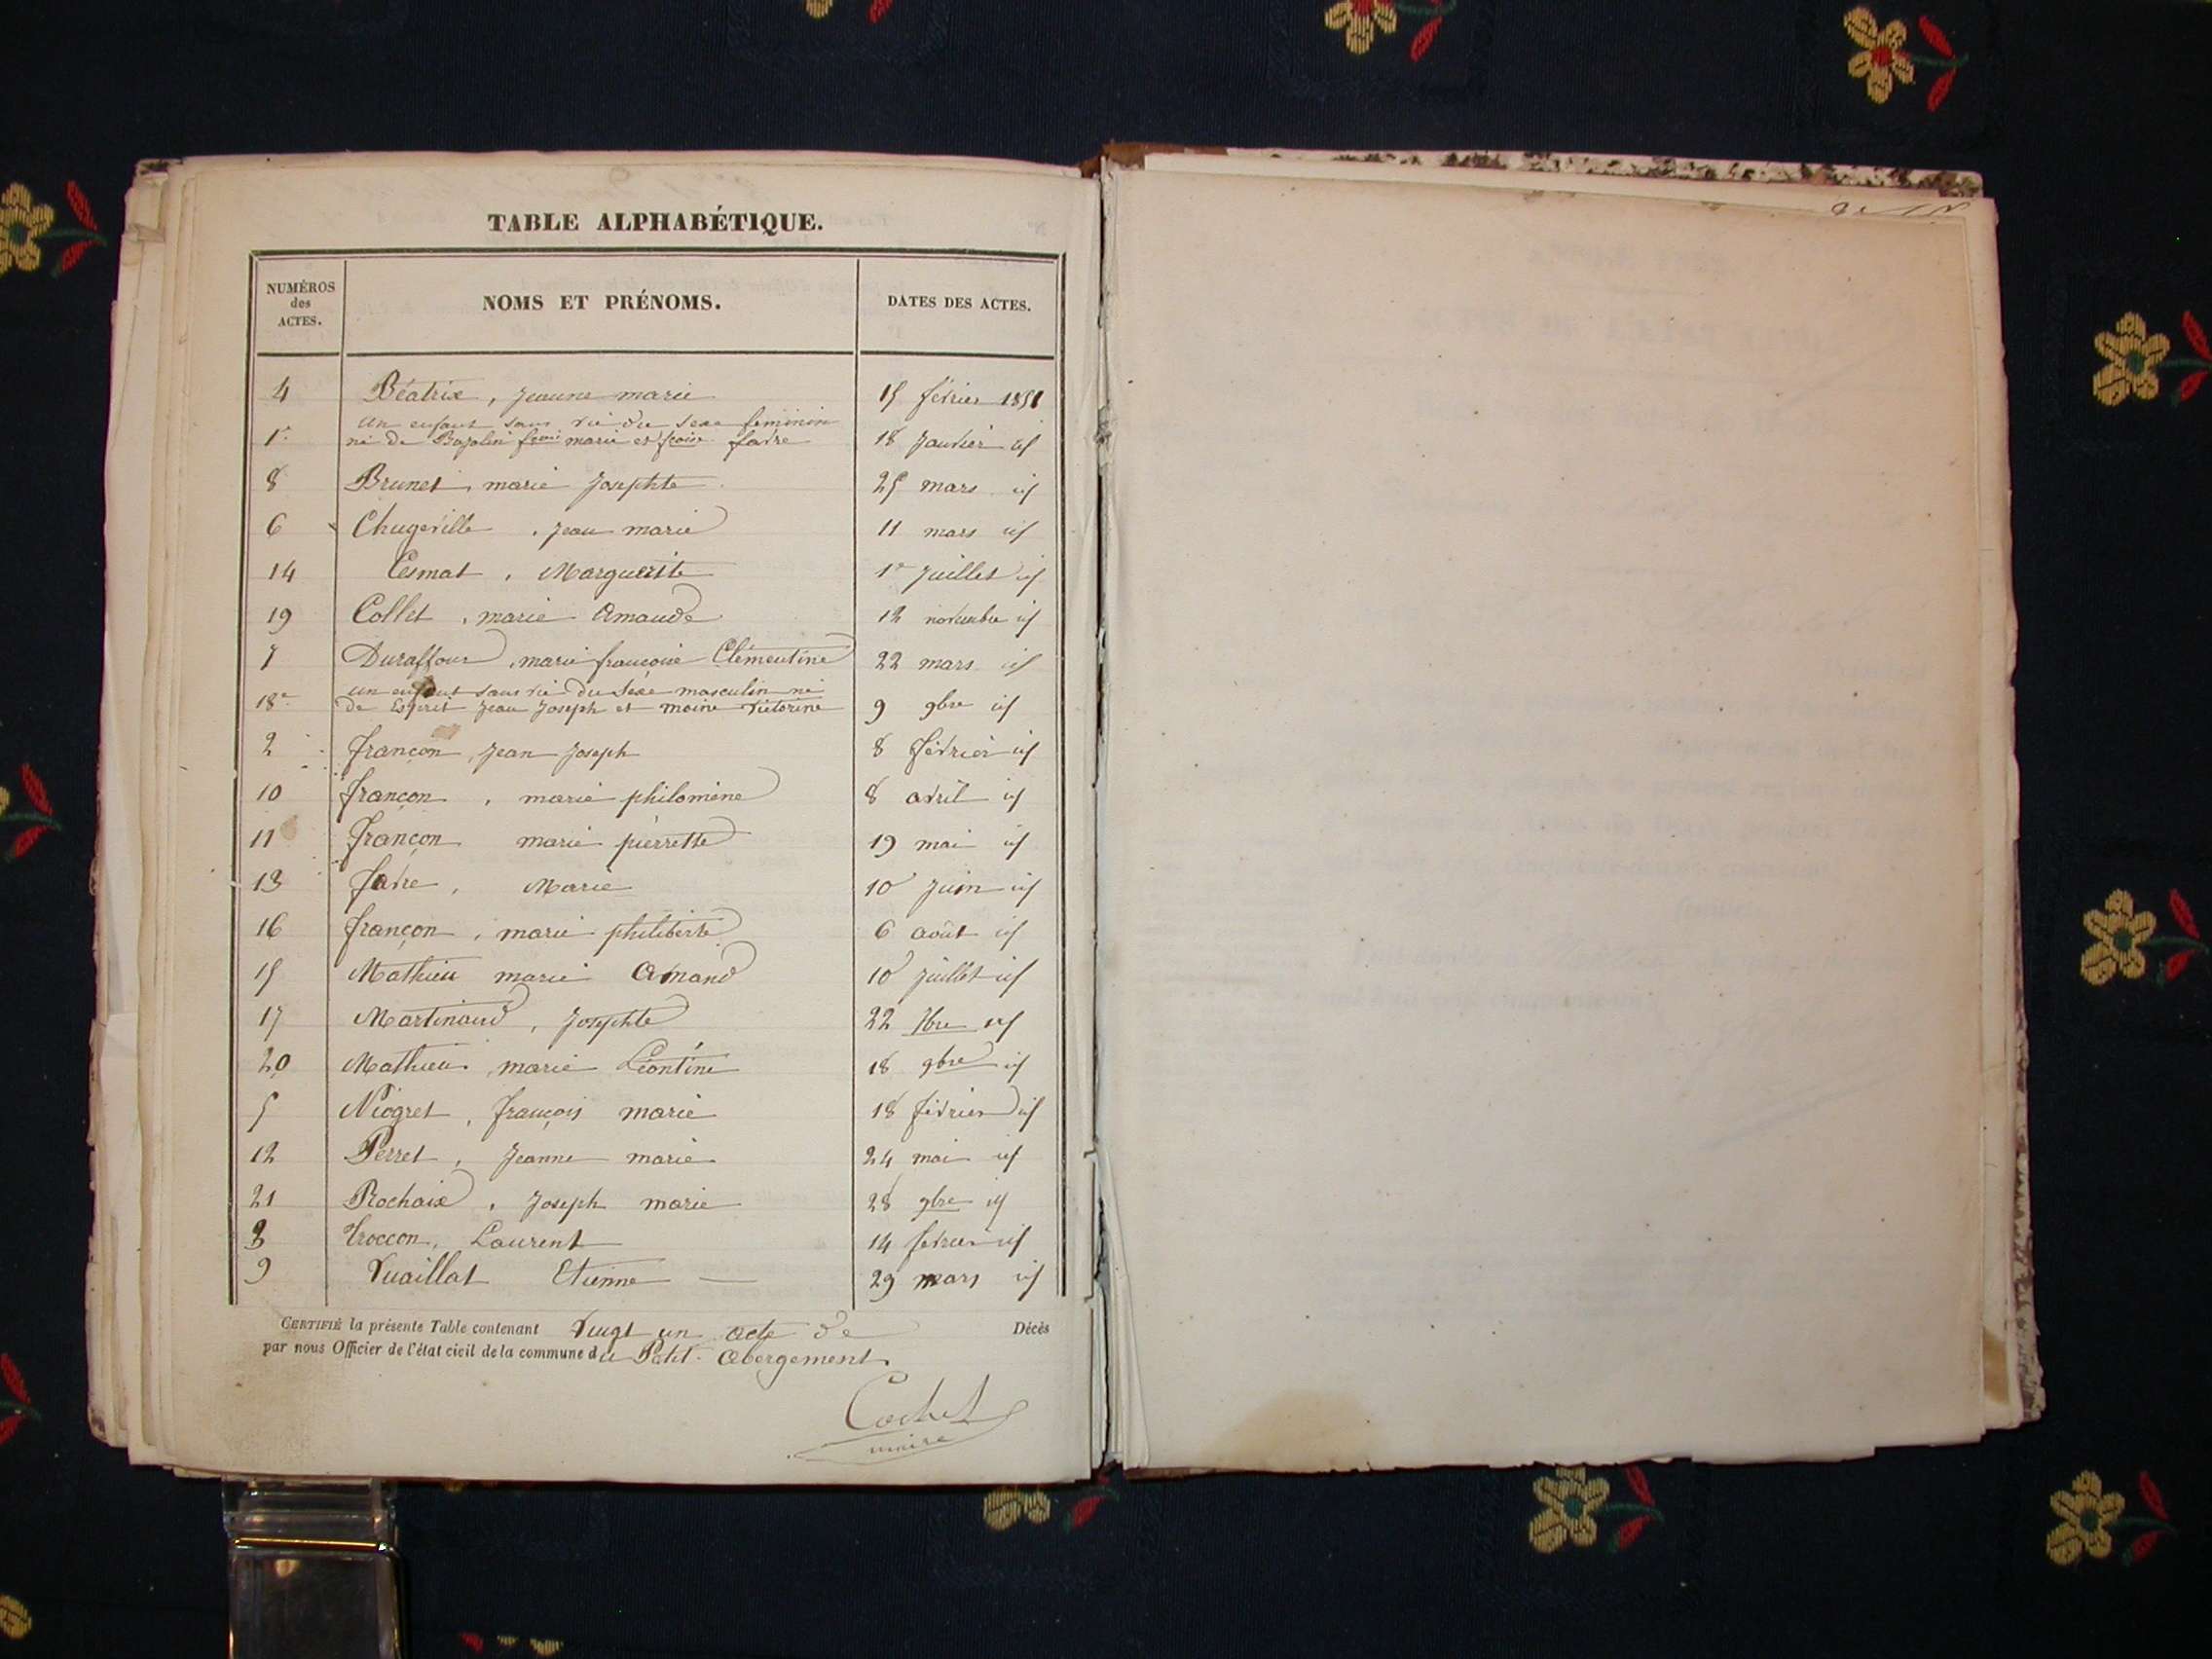 TABLE ALPHABÉTIQUE.
NUMÉROS des ACTES. NOMS ET PRÉNOMS. DATES DES ACTES.
4 Béatrix, Jeanne marie 15 février 1851
un enfant sans vie du sexe feminin
1er né de marie et favre 18 Janvier id
8 Brunet, marie Josephte 25 mars id
6 Chugeville, Jean marie 11 mars id
14 Cesmat, Marguerite 1er Juillet id
19 Collet, marie Amande 12 novembre id
7 Duraffour, marie françoise Clémentine 22 mars id
un enfant sans vie du sexe masculin né
18e de Esprit Jean Joseph et moine victorine 9 9bre id
2 françon, Jean Joseph 8 février id
10 françon, marie philomène 8 avril id
11 françon marie pierrette 19 mai id
13 favre, Marie 10 Juin id
16 françon, marie philiberte 6 août id
15 Mathieu marie Amand 10 Juillet id
17 Martinand, Josephte 22 id
20 Mathieu marie Léontine 18 9bre id
5 Niogret, françois marie 18 février id
12 Perret, Jeanne marie 24 mai id
21 Rochaix, Joseph marie 28 9bre id
3 Troccon, Laurent 14 fevrier id
9 Vuaillat Etienne 29 mars id
CERTIFIÉ la présente Table contenant vingt un acte de Décès
par nous Officier de l'état civil de la commune du Petit Abergement.
Cochet
maire